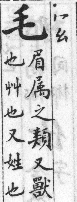 毛
眉属之類又獸
也艸也又姓也